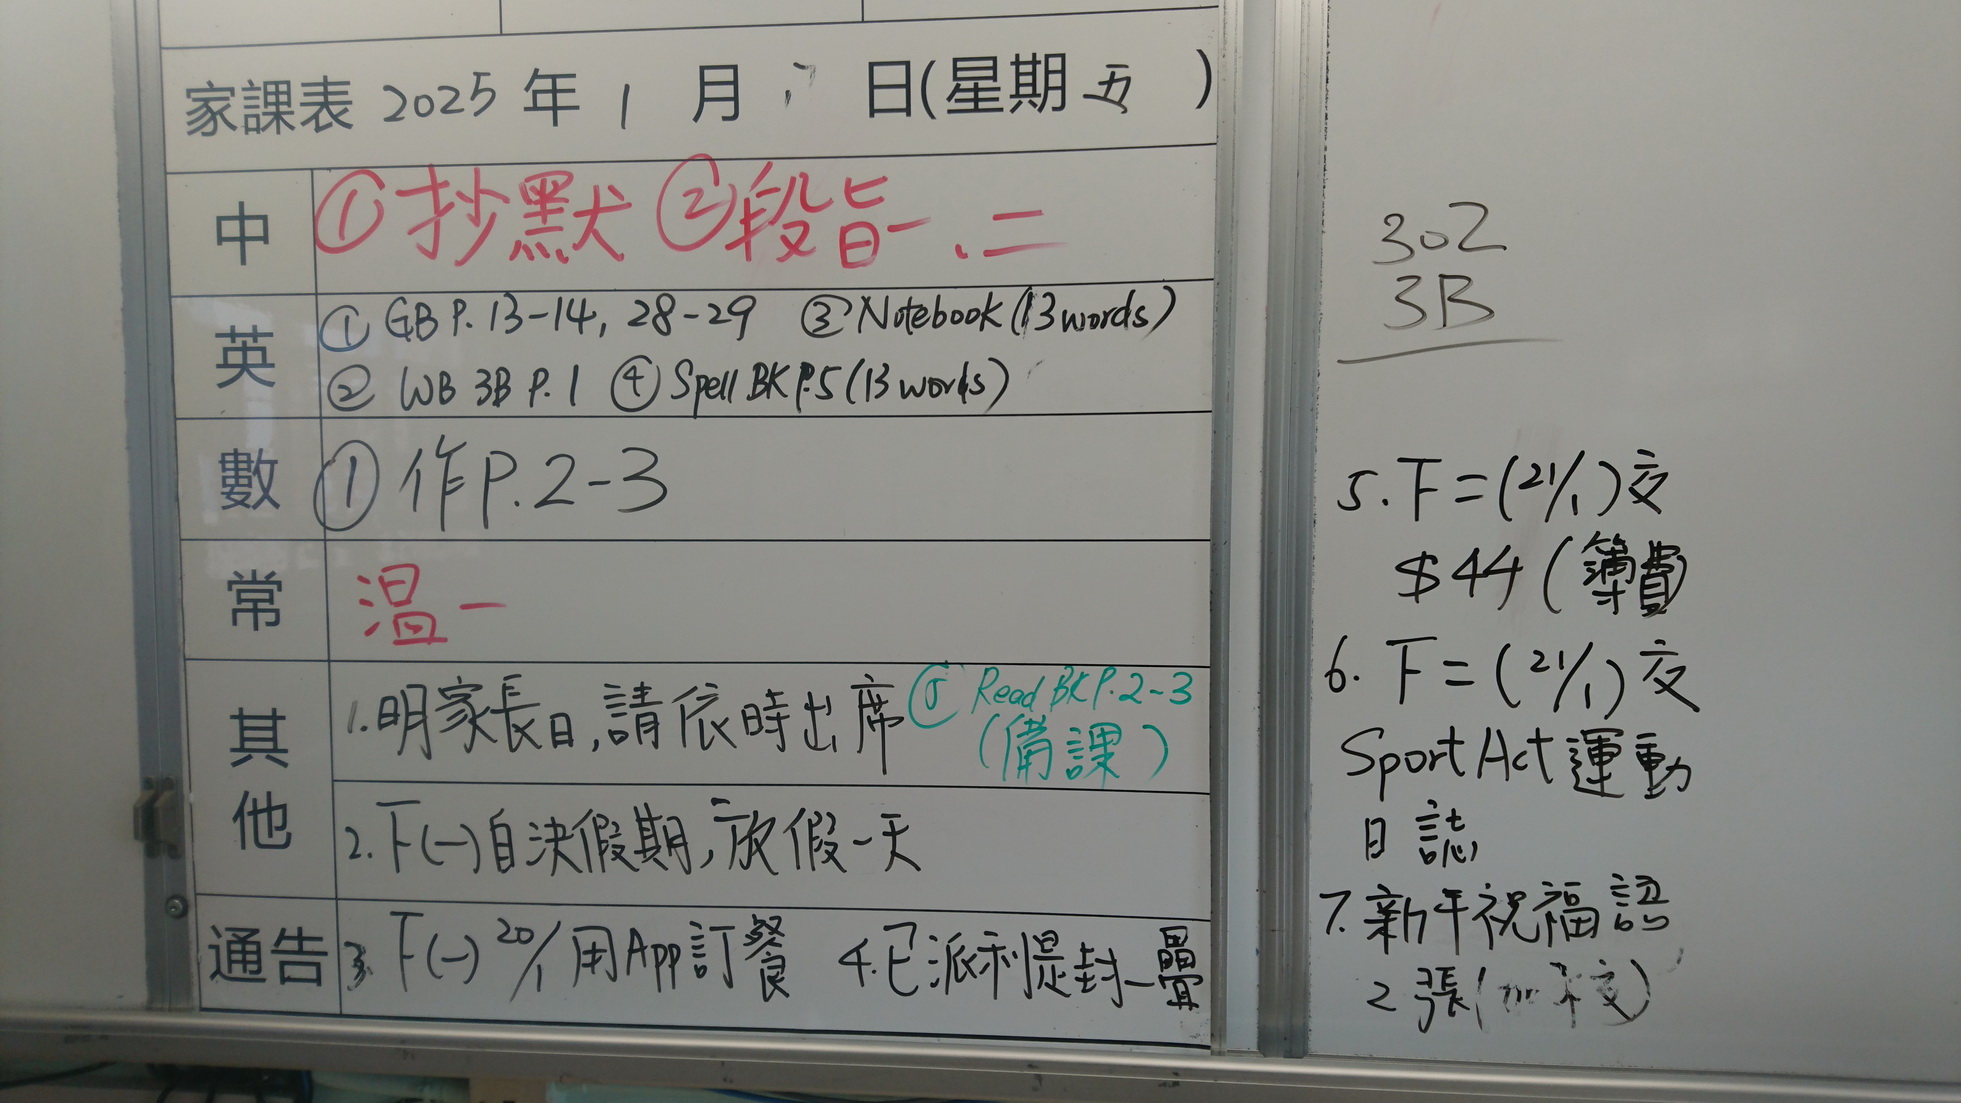 家課表 2025 年 1 月 日(星期 五 )
中 ①抄默 ②段旨一、二
英 ① GB P. 13-14, 28-29 ③ Notebook (13 words)
② WB 3B P. 1 ④ Spell BK P.5 (13 words)
數 ① 作P. 2-3
常 温一
其他 1. 明家長日,請依時出席 ⑤ Read BK P. 2-3
(備課)
2. 下(一)自決假期,放假一天
通告 3. 下(一) 20/1 用App訂餐 4. 已派利是封一疊
302
3B
5. 下二(21/1)交
$44 (簿費)
6. 下二(21/1)交
Sport Act 運動
日誌
7. 新年祝福語
2張